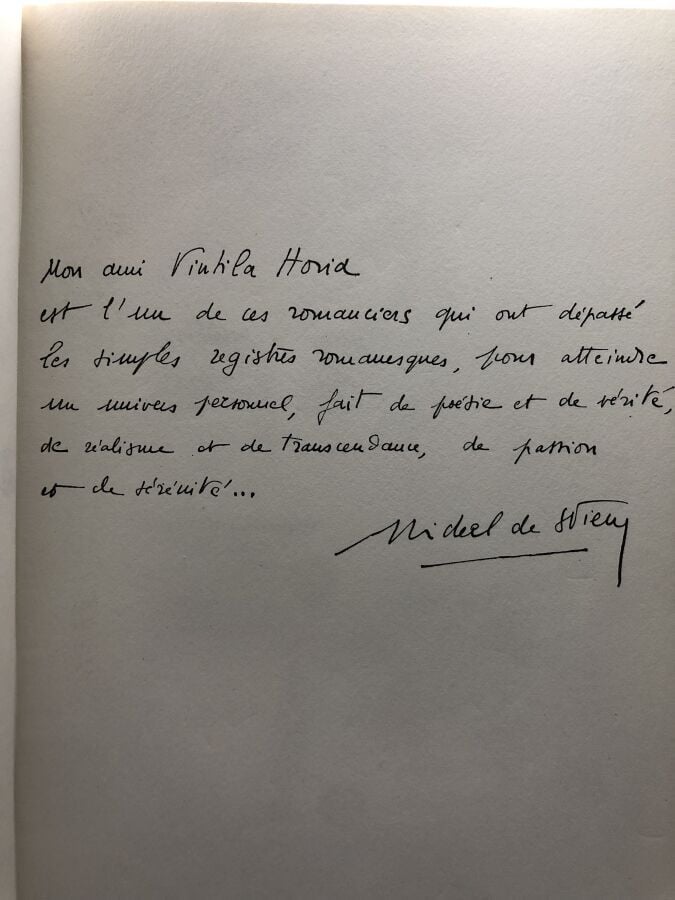 Mon ami Vintila Horia
est l'un de ces romanciers qui ont dépassé
les simples registres romanesques, pour atteindre
un univers personnel, fait de poésie et de vérité,
de réalisme et de transcendance, de passion
et de sérénité...
Michel de